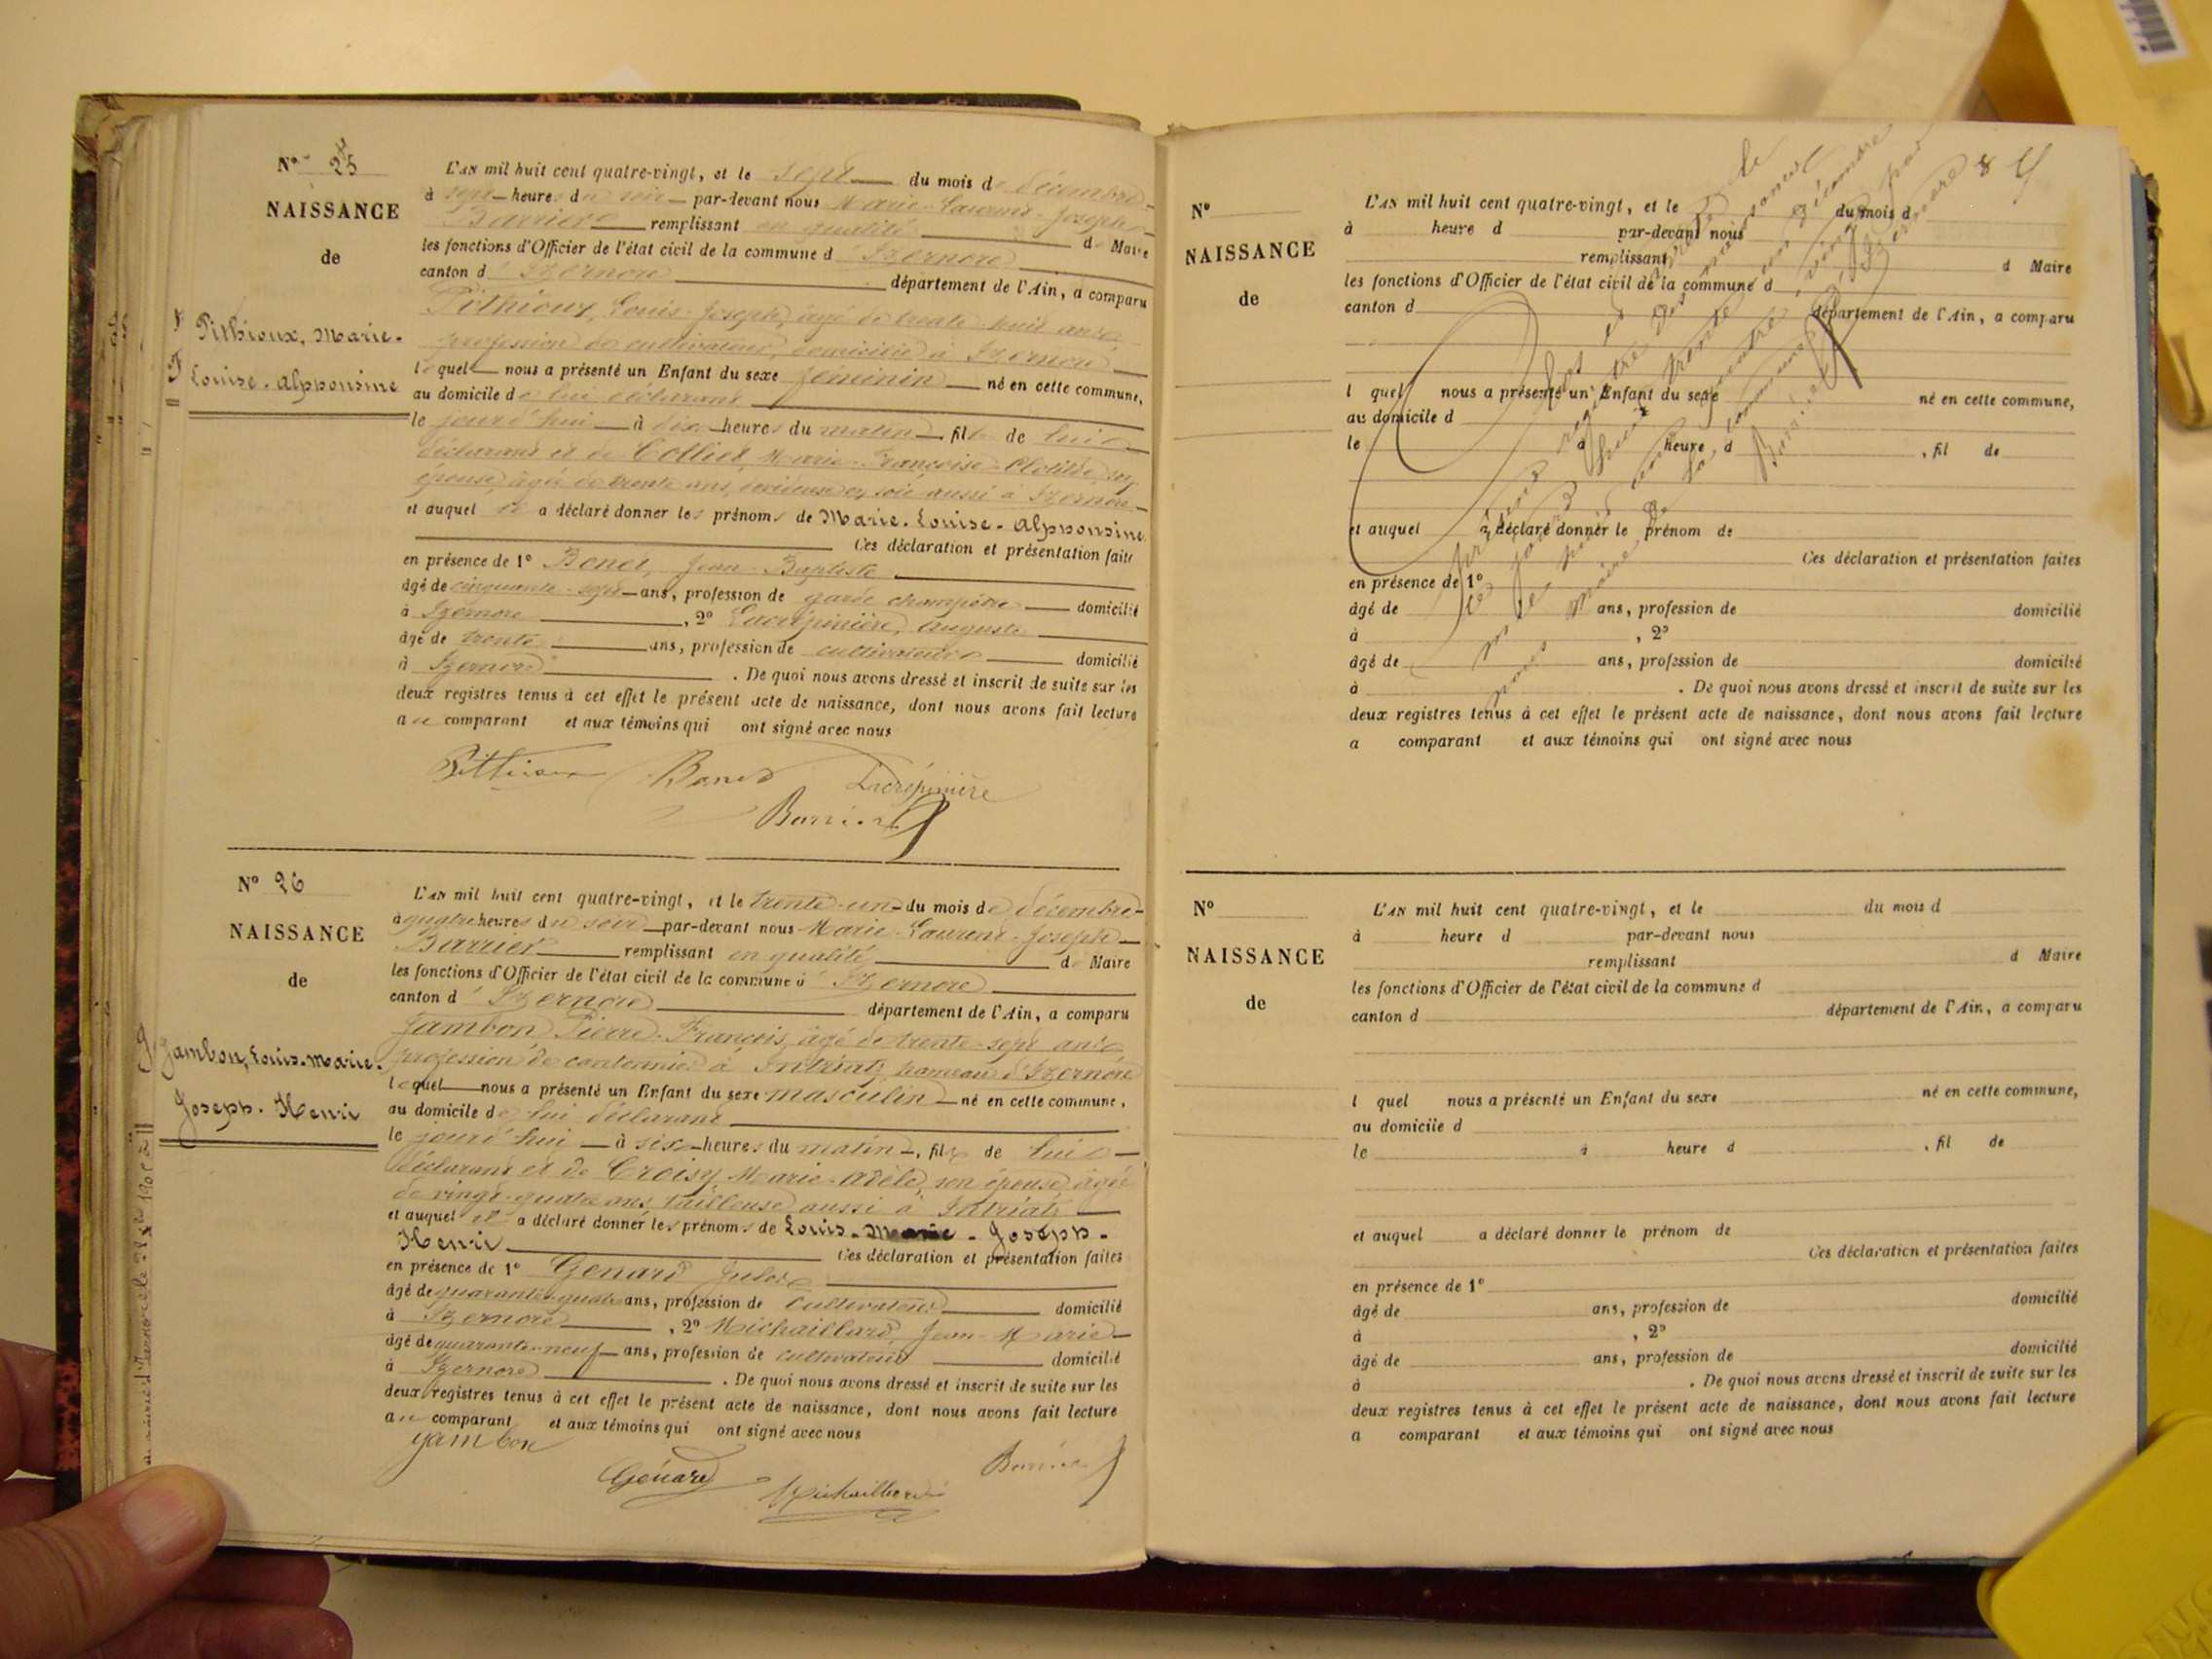 N° 25
NAISSANCE
de
Pithioux, Marie-
Louise-Alphonsine
L'AN mil huit cent quatre-vingt, et le sept du mois de décembre
à sept heures du soir par-devant nous Marie-Laurent-Joseph
Barrier remplissant en qualité de Maire
les fonctions d'Officier de l'état civil de la commune d'Izernore
canton d'Izernore département de l'Ain, a comparu
Pithioux, Louis-Joseph, âgé de trente-huit ans
profession de cultivateur, domicilié à Izernore
lequel nous a présenté un Enfant du sexe féminin né en cette commune,
au domicile de lui déclarant
le jourd'hui à dix heures du matin, fille de lui
déclarant et de Colliet, Marie-Françoise-Clotilde, son
épouse, âgée de trente ans, dévideuse en soie aussi à Izernore
et auquel il a déclaré donner les prénoms de Marie-Louise-Alphonsine
Ces déclaration et présentation faites
en présence de 1° Benet, Jean-Baptiste
âgé de cinquante-sept ans, profession de garde champêtre domicilié
à Izernore, 2° Lacrépinière, Auguste
âgé de trente ans, profession de cultivateur domicilié
à Izernore. De quoi nous avons dressé et inscrit de suite sur les
deux registres tenus à cet effet le présent acte de naissance, dont nous avons fait lecture
au comparant et aux témoins qui ont signé avec nous
Pithioux Benet Lacrépinière
Barrier
N° 26
NAISSANCE
de
Jambon, Louis-Marie-
Joseph-Henri
L'AN mil huit cent quatre-vingt, et le trente-un du mois de décembre
à quatre heures du soir par-devant nous Marie-Laurent-Joseph
Barrier remplissant en qualité de Maire
les fonctions d'Officier de l'état civil de la commune d'Izernore
canton d'Izernore département de l'Ain, a comparu
Jambon, Pierre-François, âgé de trente-sept ans
profession de cantonnier à Intriat, hameau d'Izernore
lequel nous a présenté un Enfant du sexe masculin né en cette commune,
au domicile de lui déclarant
le jourd'hui à six heures du matin, fils de lui
déclarant et de Croisy, Marie-Adèle, son épouse, âgée
de vingt-quatre ans, tailleuse aussi à Intriat
et auquel il a déclaré donner les prénoms de Louis-Marie-Joseph-
Henri Ces déclaration et présentation faites
en présence de 1° Génard Jules
âgé de quarante-quatre ans, profession de cultivateur domicilié
à Izernore, 2° Michaillard, Jean-Marie
âgé de quarante-neuf ans, profession de cultivateur domicilié
à Izernore. De quoi nous avons dressé et inscrit de suite sur les
deux registres tenus à cet effet le présent acte de naissance, dont nous avons fait lecture
au comparant et aux témoins qui ont signé avec nous
Jambon
Génard Michaillard Barrier
N°
NAISSANCE
de
L'AN mil huit cent quatre-vingt, et le du mois d
à heure d par-devant nous
remplissant d Maire
les fonctions d'Officier de l'état civil de la commune d
canton d département de l'Ain, a comparu
l quel nous a présenté un Enfant du sexe né en cette commune,
au domicile d
le à heure d , fil de
et auquel a déclaré donner le prénom de
Ces déclaration et présentation faites
en présence de 1°
âgé de ans, profession de domicilié
à , 2°
âgé de ans, profession de domicilié
à . De quoi nous avons dressé et inscrit de suite sur les
deux registres tenus à cet effet le présent acte de naissance, dont nous avons fait lecture
a comparant et aux témoins qui ont signé avec nous
N°
NAISSANCE
de
L'AN mil huit cent quatre-vingt, et le du mois d
à heure d par-devant nous
remplissant d Maire
les fonctions d'Officier de l'état civil de la commune d
canton d département de l'Ain, a comparu
l quel nous a présenté un Enfant du sexe né en cette commune,
au domicile d
le à heure d , fil de
et auquel a déclaré donner le prénom de
Ces déclaration et présentation faites
en présence de 1°
âgé de ans, profession de domicilié
à , 2°
âgé de ans, profession de domicilié
à . De quoi nous avons dressé et inscrit de suite sur les
deux registres tenus à cet effet le présent acte de naissance, dont nous avons fait lecture
a comparant et aux témoins qui ont signé avec nous